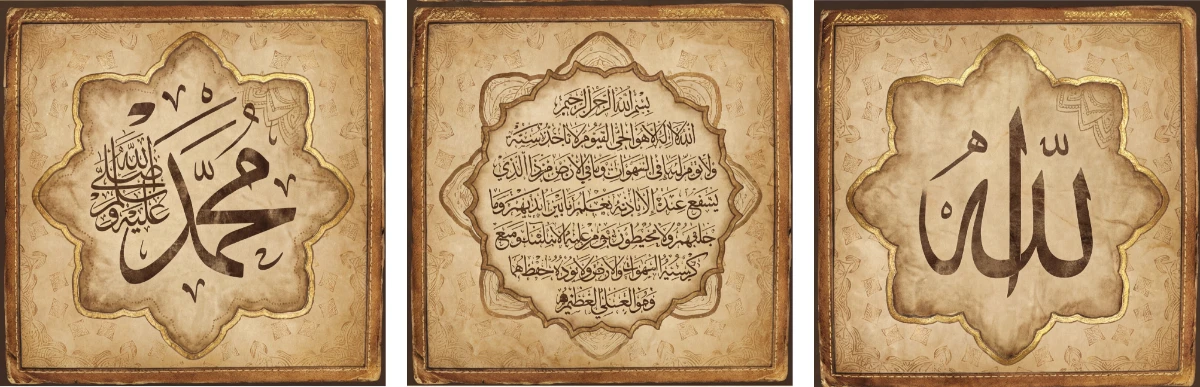 الله
بسم الله الرحمن الرحيم
الله لا اله الا هو الحي القيوم لا تأخذه سنة
ولا نوم له ما في السموات وما في الارض من ذا الذي
يشفع عنده الا باذنه يعلم ما بين ايديهم وما
خلفهم ولا يحيطون بشيء من علمه الا بما شاء وسع
كرسيه السموات والارض ولا يؤده حفظهما
وهو العلي العظيم
محمد
صلى الله عليه وسلم